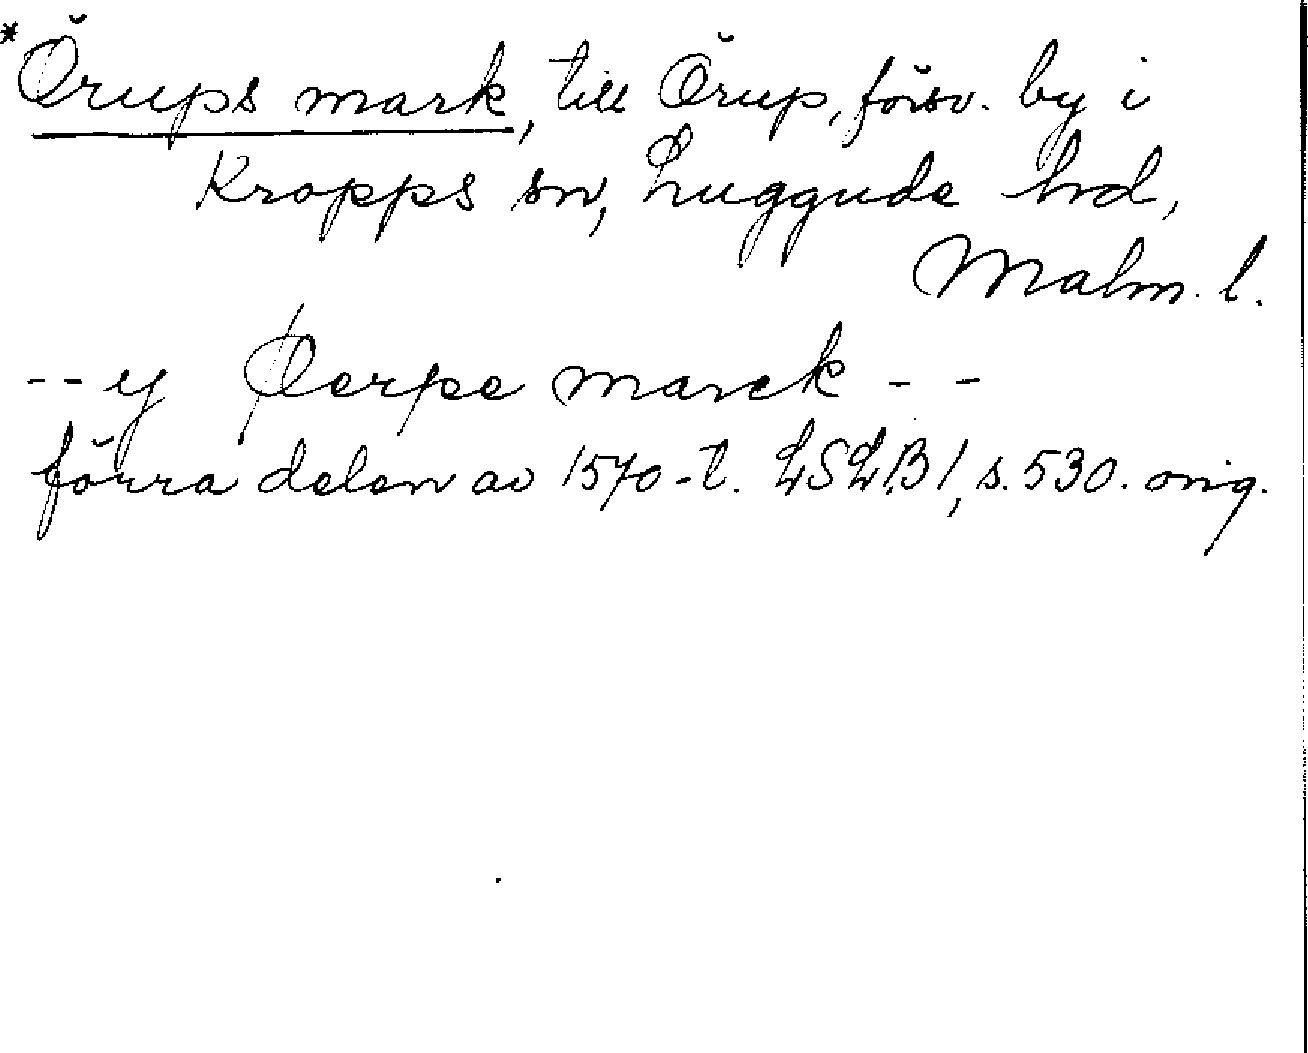 *Örups mark, till Örup, försv. by i
Kropps sn, Luggude hd,
Malm. l.
-- y Øerpe marck --
förra delen av 1570-t. LSLB1, s. 530. orig.